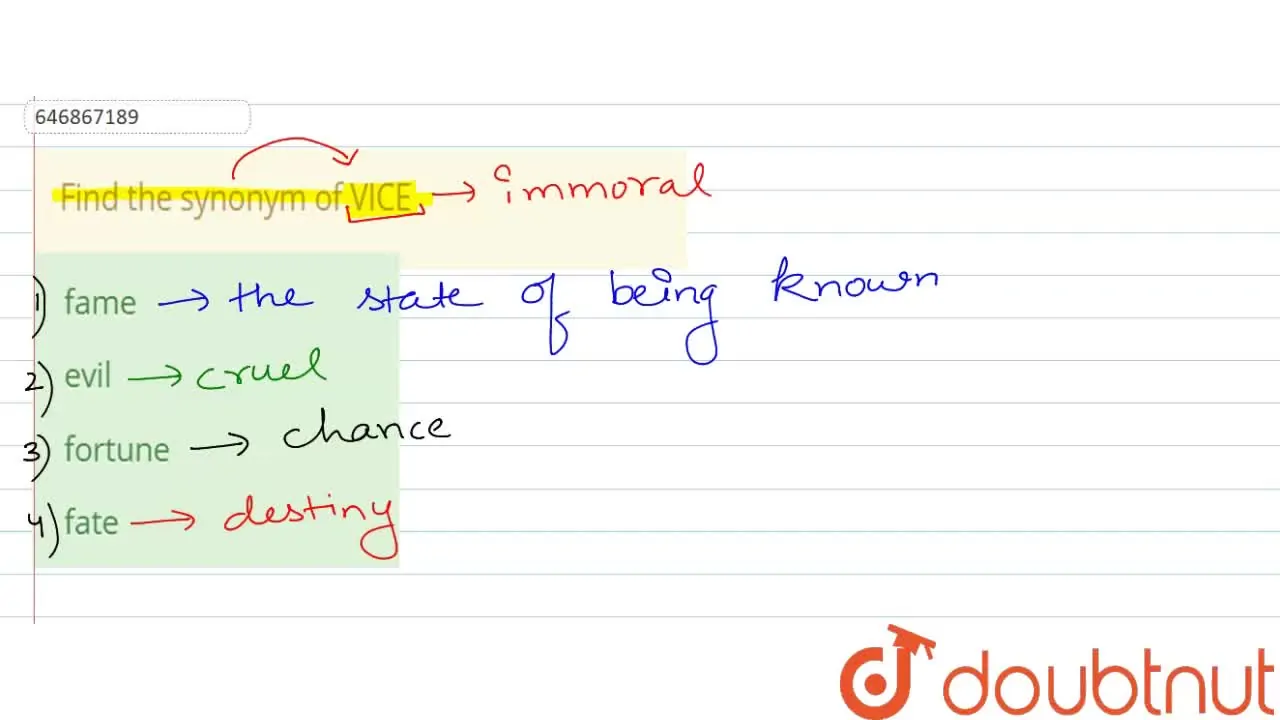 646867189
Find the synonym of VICE → immoral
1) fame → the state of being known
2) evil → cruel
3) fortune → chance
4) fate → destiny
doubtnut